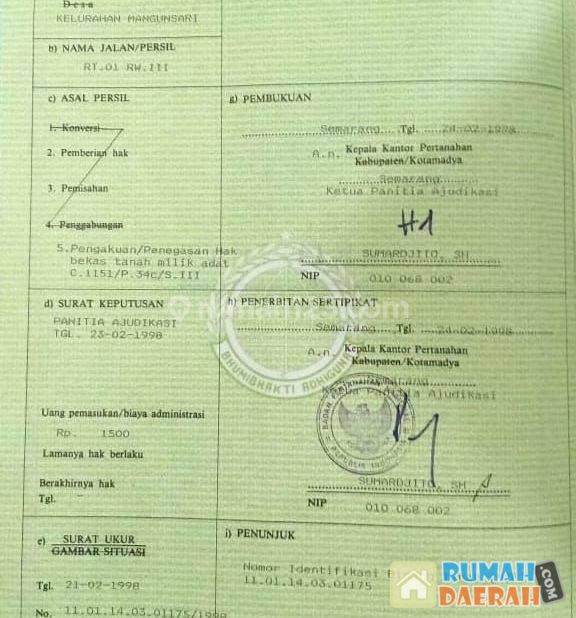 Desa
KELURAHAN MANGUNSARI
b) NAMA JALAN/PERSIL
RT.01 RW.III
c) ASAL PERSIL
1. Konversi
2. Pemberian hak
3. Pemisahan
4. Penggabungan
5.Pengakuan/Penegasan Hak
bekas tanah milik adat
C.1151/P.34c/S.III
g) PEMBUKUAN
Semarang Tgl. 24-02-1998
A.n. Kepala Kantor Pertanahan
Kabupaten/Kotamadya
Semarang
Ketua Panitia Ajudikasi
SUMARDJITO, SH
NIP 010 068 002
d) SURAT KEPUTUSAN
PANITIA AJUDIKASI
TGL. 23-02-1998
Uang pemasukan/biaya administrasi
Rp. 1500
Lamanya hak berlaku
Berakhirnya hak
Tgl.
h) PENERBITAN SERTIPIKAT
Semarang Tgl. 24-02-1998
A.n. Kepala Kantor Pertanahan
Kabupaten/Kotamadya
Semarang
Ketua Panitia Ajudikasi
BADAN PERTANAHAN
REPUBLIK INDONESIA
SUMARDJITO, SH
NIP 010 068 002
BHUMIBHAKTI ADHIGUNA
e) SURAT UKUR
GAMBAR SITUASI
Tgl. 21-02-1998
No. 11.01.14.03.01175/1998
i) PENUNJUK
Nomor Identifikasi
11.01.14.03.01175
RUMAH
DAERAH
.COM